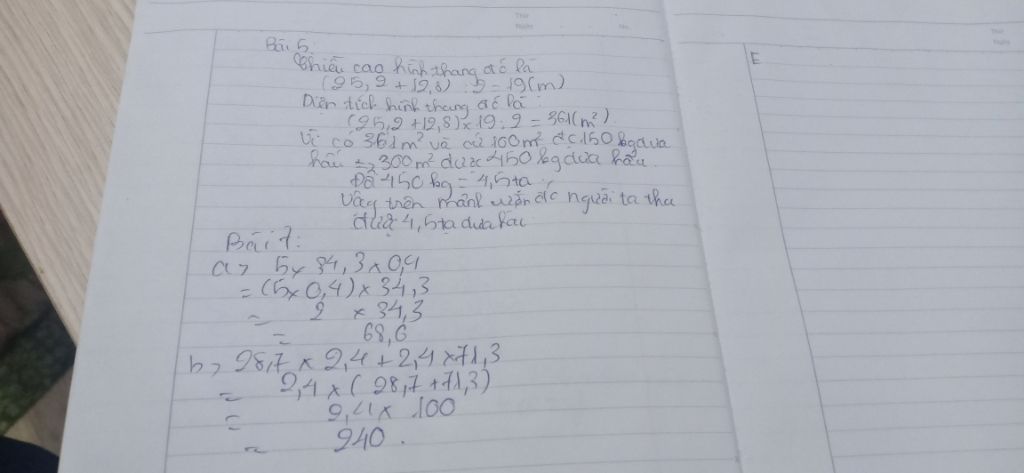 Thứ
Ngày
No.
Thứ
Ngày
Bài 5:
Chiều cao hình thang đó là
(25,2 + 12,8) : 2 = 19 (m)
Diện tích hình thang đó là:
(25,2 + 12,8) x 19 : 2 = 361 (m²)
Vì có 361m² và cứ 100m² đc 150 kg dưa
hấu => 300m² được 450 kg dưa hấu
Đổi 450 kg = 4,5 tạ
Vậy trên mảnh vườn đó người ta thu
được 4,5 tạ dưa hấu
Bài 7:
a> 5 x 34,3 x 0,4
= (5 x 0,4) x 34,3
= 2 x 34,3
= 68,6
b> 28,7 x 2,4 + 2,4 x 71,3
= 2,4 x ( 28,7 + 71,3)
= 2,4 x 100
= 240.
E